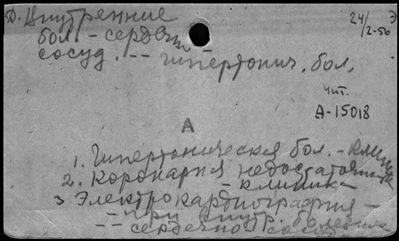 Д. Внутренние
бол. - сердечн.
сосуд. -- гипертонич. бол.
24/2-56
Э
чит.
А-15018
А
1. Гипертоническая бол. - клиника
2. Коронарная недостаточн.
- клиника
3 Электрокардиография -
-- при внутр. болезнях
-- сердечно сосуд.